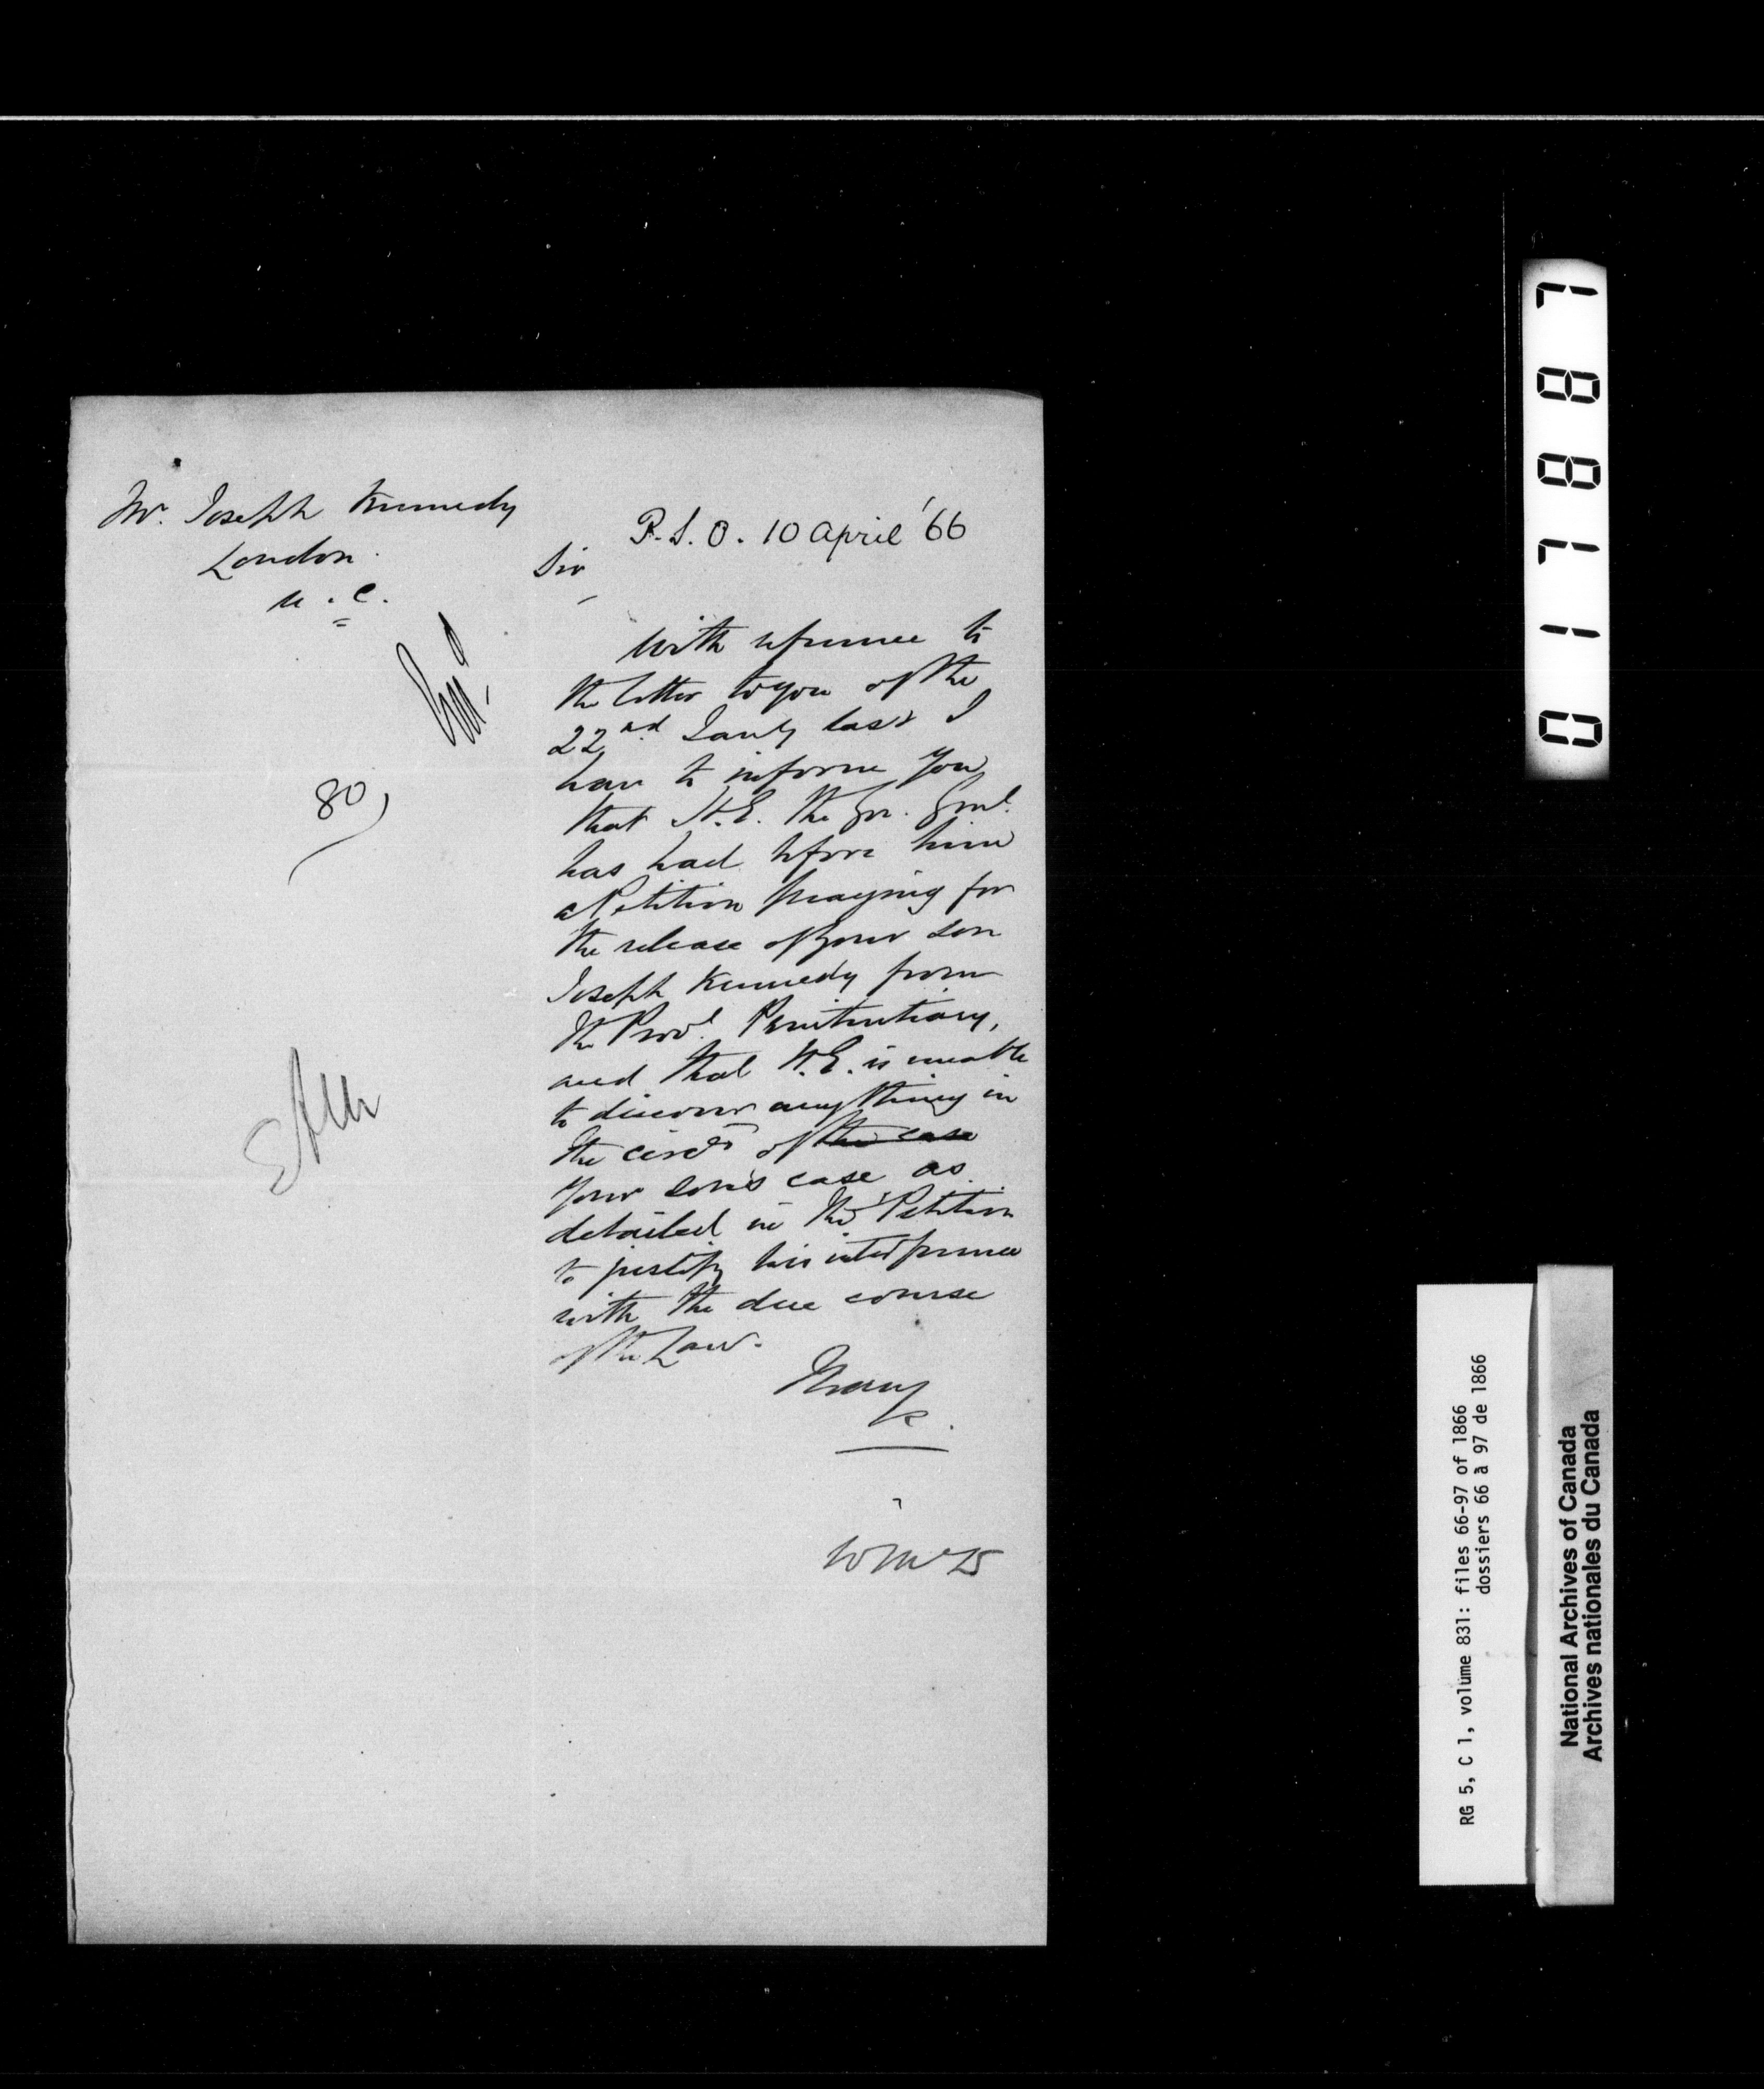 Mr. Joseph Kennedy
London
U. C.
P.S.O. 10 April '66
Sir
With reference to
the letter to you of the
22nd Jany last I
have to inform you
that H.E. the Gov. Genl.
has had before him
a Petition praying for
the release of your son
Joseph Kennedy from
the Provl. Penitentiary,
and that H.E. is unable
to discover anything in
the circes of the case
your son's case as
detailed in the Petition
to justify his interference
with the due course
of the Law.
80
017887
RG 5, C 1, volume 831: files 66-97 of 1866
dossiers 66 à 97 de 1866
National Archives of Canada
Archives nationales du Canada